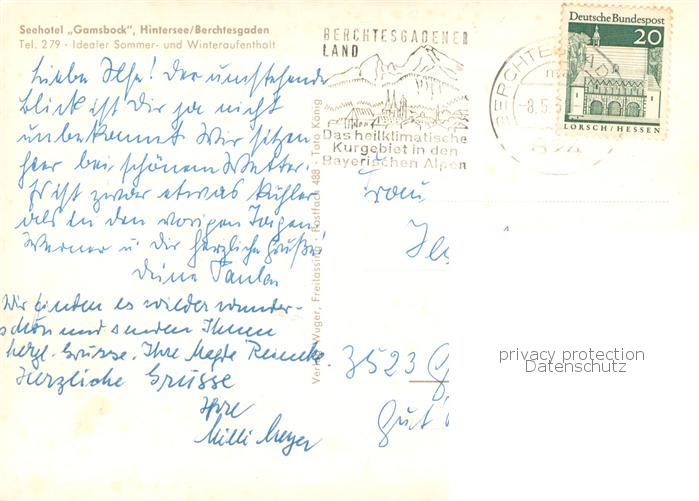 Seehotel „Gamsbock“, Hintersee/Berchtesgaden
Tel. 279 · Idealer Sommer- und Winteraufenthalt
Liebe Ilse! Der umstehende
Blick ist Dir ja nicht
unbekannt. Wir sitzen
hier bei schönem Wetter.
Es ist zwar etwas kühler
als in den vorigen Tagen.
Werner u. Dir herzliche Grüße!
Deine Paula
Wir finden es wieder wunder-
schön und senden Ihnen
herzl. Grüsse. Ihre Magda Reincke.
Herzliche Grüsse
Ihre
Milli Meyer
Verlag Wuger, Freilassing · Postfach 488 · Foto König
BERCHTESGADENER
LAND
Das heilklimatische
Kurgebiet in den
Bayerischen Alpen
BERCHTESGAD
-8.5.6
Deutsche Bundespost
20
LORSCH/HESSEN
Frau
3523
Gut
privacy protection
Datenschutz